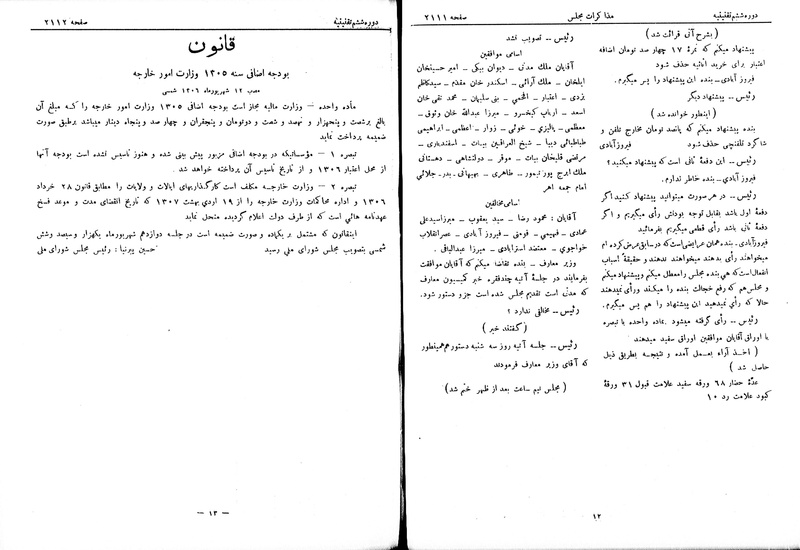 دوره ششم تقنینیه
مذاکرات مجلس
صفحه ۲۱۱۱
( بشرح آتی قرائت شد )
پیشنهاد میکنم که نمرهٔ ۱۷ چهار صد تومان اضافه
اعتبار برای خرید اثاثیه حذف شود
فیروز آبادی ــ بنده این پیشنهاد را پس میگیرم.
رئیس ــ پیشنهاد دیگر
( اینطور خوانده شد )
بنده پیشنهاد میکنم که پانصد تومان مخارج تلفن و
شاگرد تلفنچی حذف شود فیروزآبادی
رئیس ــ این دفعهٔ ثانی است که پیشنهاد میکنید؟
فیروز آبادی ــ بنده خاطر ندارم.
رئیس ــ در هر صورت میتوانید پیشنهاد کنید اگر
دفعهٔ اول باشد بقابل توجه بودنش رأی میگیریم و اگر
دفعهٔ ثانی باشد رأی قطعی میگیریم بفرمائید
فیروزآبادی ــ بنده همان عرایضی است که در سابق عرض کرده ام
میخواهند رأی بدهند میخواهند ندهند و حقیقة اسباب
انفعال است که هی بنده مجلس را معطل میکنم و پیشنهاد میکنم
و مجلس هم که رفع خجالت بنده را میکند و رأی نمیدهند
حالا که رأی نمیدهید این پیشنهاد را هم پس میگیرم.
رئیس ــ رأی گرفته میشود بماده واحده با تبصره
با اوراق آقایان موافقین اوراق سفید میدهند
( اخذ آراء بعمل آمده و نتیجه بطریق ذیل
حاصل شد )
عدهٔ حضار ۶۸ ورقه سفید علامت قبول ۳۱ ورقهٔ
کبود علامت رد ۱۰
رئیس ــ تصویب شد
اسامی موافقین
آقایان ملک مدنی ــ دیوان بیگی ــ امیر حسینخان
ایلخان ــ ملک آرائی ــ اسکندر خان مقدم ــ سیدکاظم
یزدی ــ اعتبار ــ افخمی ــ بنی سلیمان ــ محمد تقی خان
اسعد ــ ارباب کیخسرو ــ میرزا عبدالله خان وثوق ــ
معظمی ــ پالیزی ــ خوئی ــ زوار ــ اعظمی ــ ابراهیمی
طباطبائی دیبا ــ شیخ العراقین بیات ــ اسفندیاری ــ
مرتضی قلیخان بیات ــ موقر ــ دولتشاهی ــ دهستانی
ملک ایرج پور تیمور ــ طاهری ــ بهبهانی ــ بدر ــ جلائی
امام جمعه اهر
اسامی مخالفین
آقایان : محمود رضا ــ سید یعقوب ــ میرزا سیدعلی
عمادی ــ فهیمی ــ فومنی ــ فیروز آبادی ــ عصرانقلاب
خواجوی ــ معتمد استرآبادی ــ میرزا عبدالباقی .
وزیر معارف ــ بنده تقاضا میکنم که آقایان موافقت
بفرمایند در جلسهٔ آتیه چند فقره خبر کمیسیون معارف
که مدتی است تقدیم مجلس شده است جزو دستور شود.
رئیس ــ مخالفی ندارد ؟
( گفتند خیر )
رئیس ــ جلسه آتیه روز سه شنبه دستور هم همینطور
که آقای وزیر معارف فرمودند
( مجلس نیم ساعت بعد از ظهر ختم شد )
۱۲
دوره ششم تقنینیه
صفحه ۲۱۱۲
قانون
بودجه اضافی سنه ۱۳۰۵ وزارت امور خارجه
مصوب ۱۲ شهریورماه ۱۳۰۶ شمسی
مادهٔ واحده ــ وزارت مالیه مجاز است بودجه اضافی ۱۳۰۵ وزارت امور خارجه را که مبلغ آن
بالغ برشصت و پنجهزار و نهصد و شصت و دوتومان و پنجقران و چهار صد و پنجاه دینار میباشد برطبق صورت
ضمیمه پرداخت نماید
تبصره ۱ ــ مؤسساتیکه در بودجه اضافی مزبور پیش بینی شده و هنوز تاسیس نشده است بودجه آنها
از محل اعتبار ۱۳۰۶ و از تاریخ تاسیس آن پرداخته خواهد شد .
تبصره ۲ ــ وزارت خارجه مکلف است کارگذاریهای ایالات و ولایات را مطابق قانون ۲۸ خرداد
۱۳۰۶ و اداره محاکمات وزارت خارجه را از ۱۹ اردی بهشت ۱۳۰۷ که تاریخ انقضای مدت و موعد فسخ
عهدنامه هائی است که از طرف دولت اعلام گردیده منحل نماید
اینقانون که مشتمل بر یکماده و صورت ضمیمه است در جلسه دوازدهم شهریورماه یکهزار و سیصد وشش
شمسی بتصویب مجلس شورای ملی رسید حسین پیرنیا : رئیس مجلس شورای ملی
ــ ۱۳ ــ